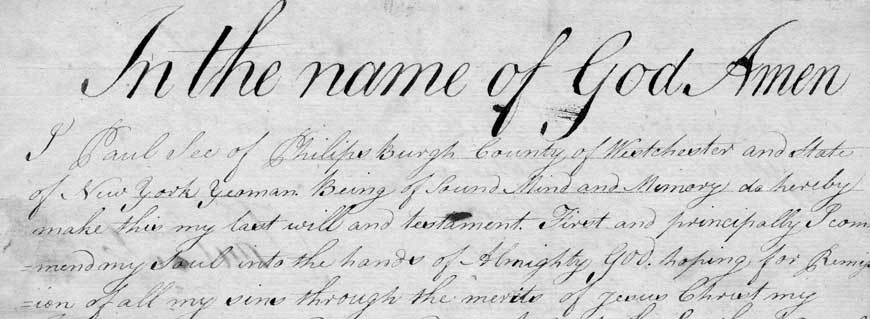 In the name of God Amen
I Paul See of Philipsburgh County of Westchester and State
of New York Yeoman. Being of Sound Mind and Mimory do hereby
make this my last will and testament. First and principally I com
=mend my Soul into the hands of Almighty GOD. hoping for Remiss
=ion of all my sins through the merits of Jesus Christ my